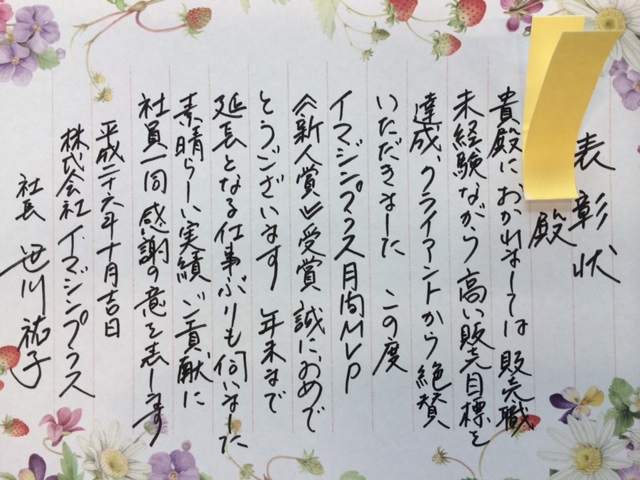 表彰状
殿
貴殿におかれましては 販売職
未経験ながら 高い販売目標を
達成、クライアントから絶賛
いただきました この度
イマジンプラス月間MVP
≪新人賞≫受賞 誠におめで
とうございます 年末まで
延長となる仕事ぶりも伺いました
素晴らしい実績 ご貢献に
社員一同感謝の意を表します
平成二十六年十月吉日
株式会社イマジンプラス
社長 笹川祐子